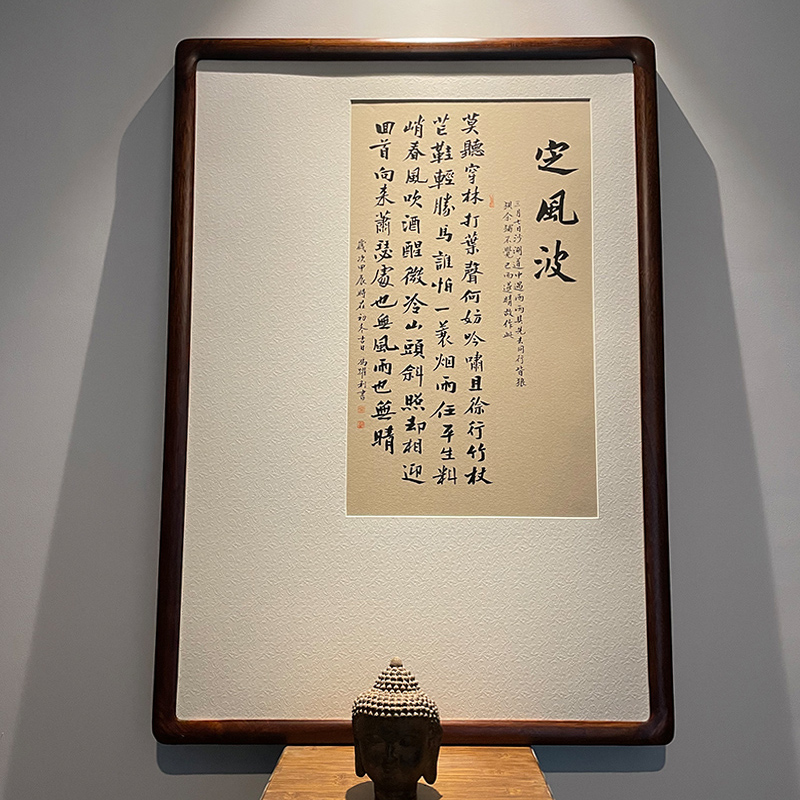 定風波
三月七日沙湖道中遇雨雨具先去同行皆狼
狽余獨不覺已而遂晴故作此
莫聽穿林打葉聲何妨吟嘯且徐行竹杖
芒鞋輕勝馬誰怕一蓑烟雨任平生料
峭春風吹酒醒微冷山頭斜照却相迎
回首向来蕭瑟處也無風雨也無晴
歲次甲辰時在初冬吉日馮